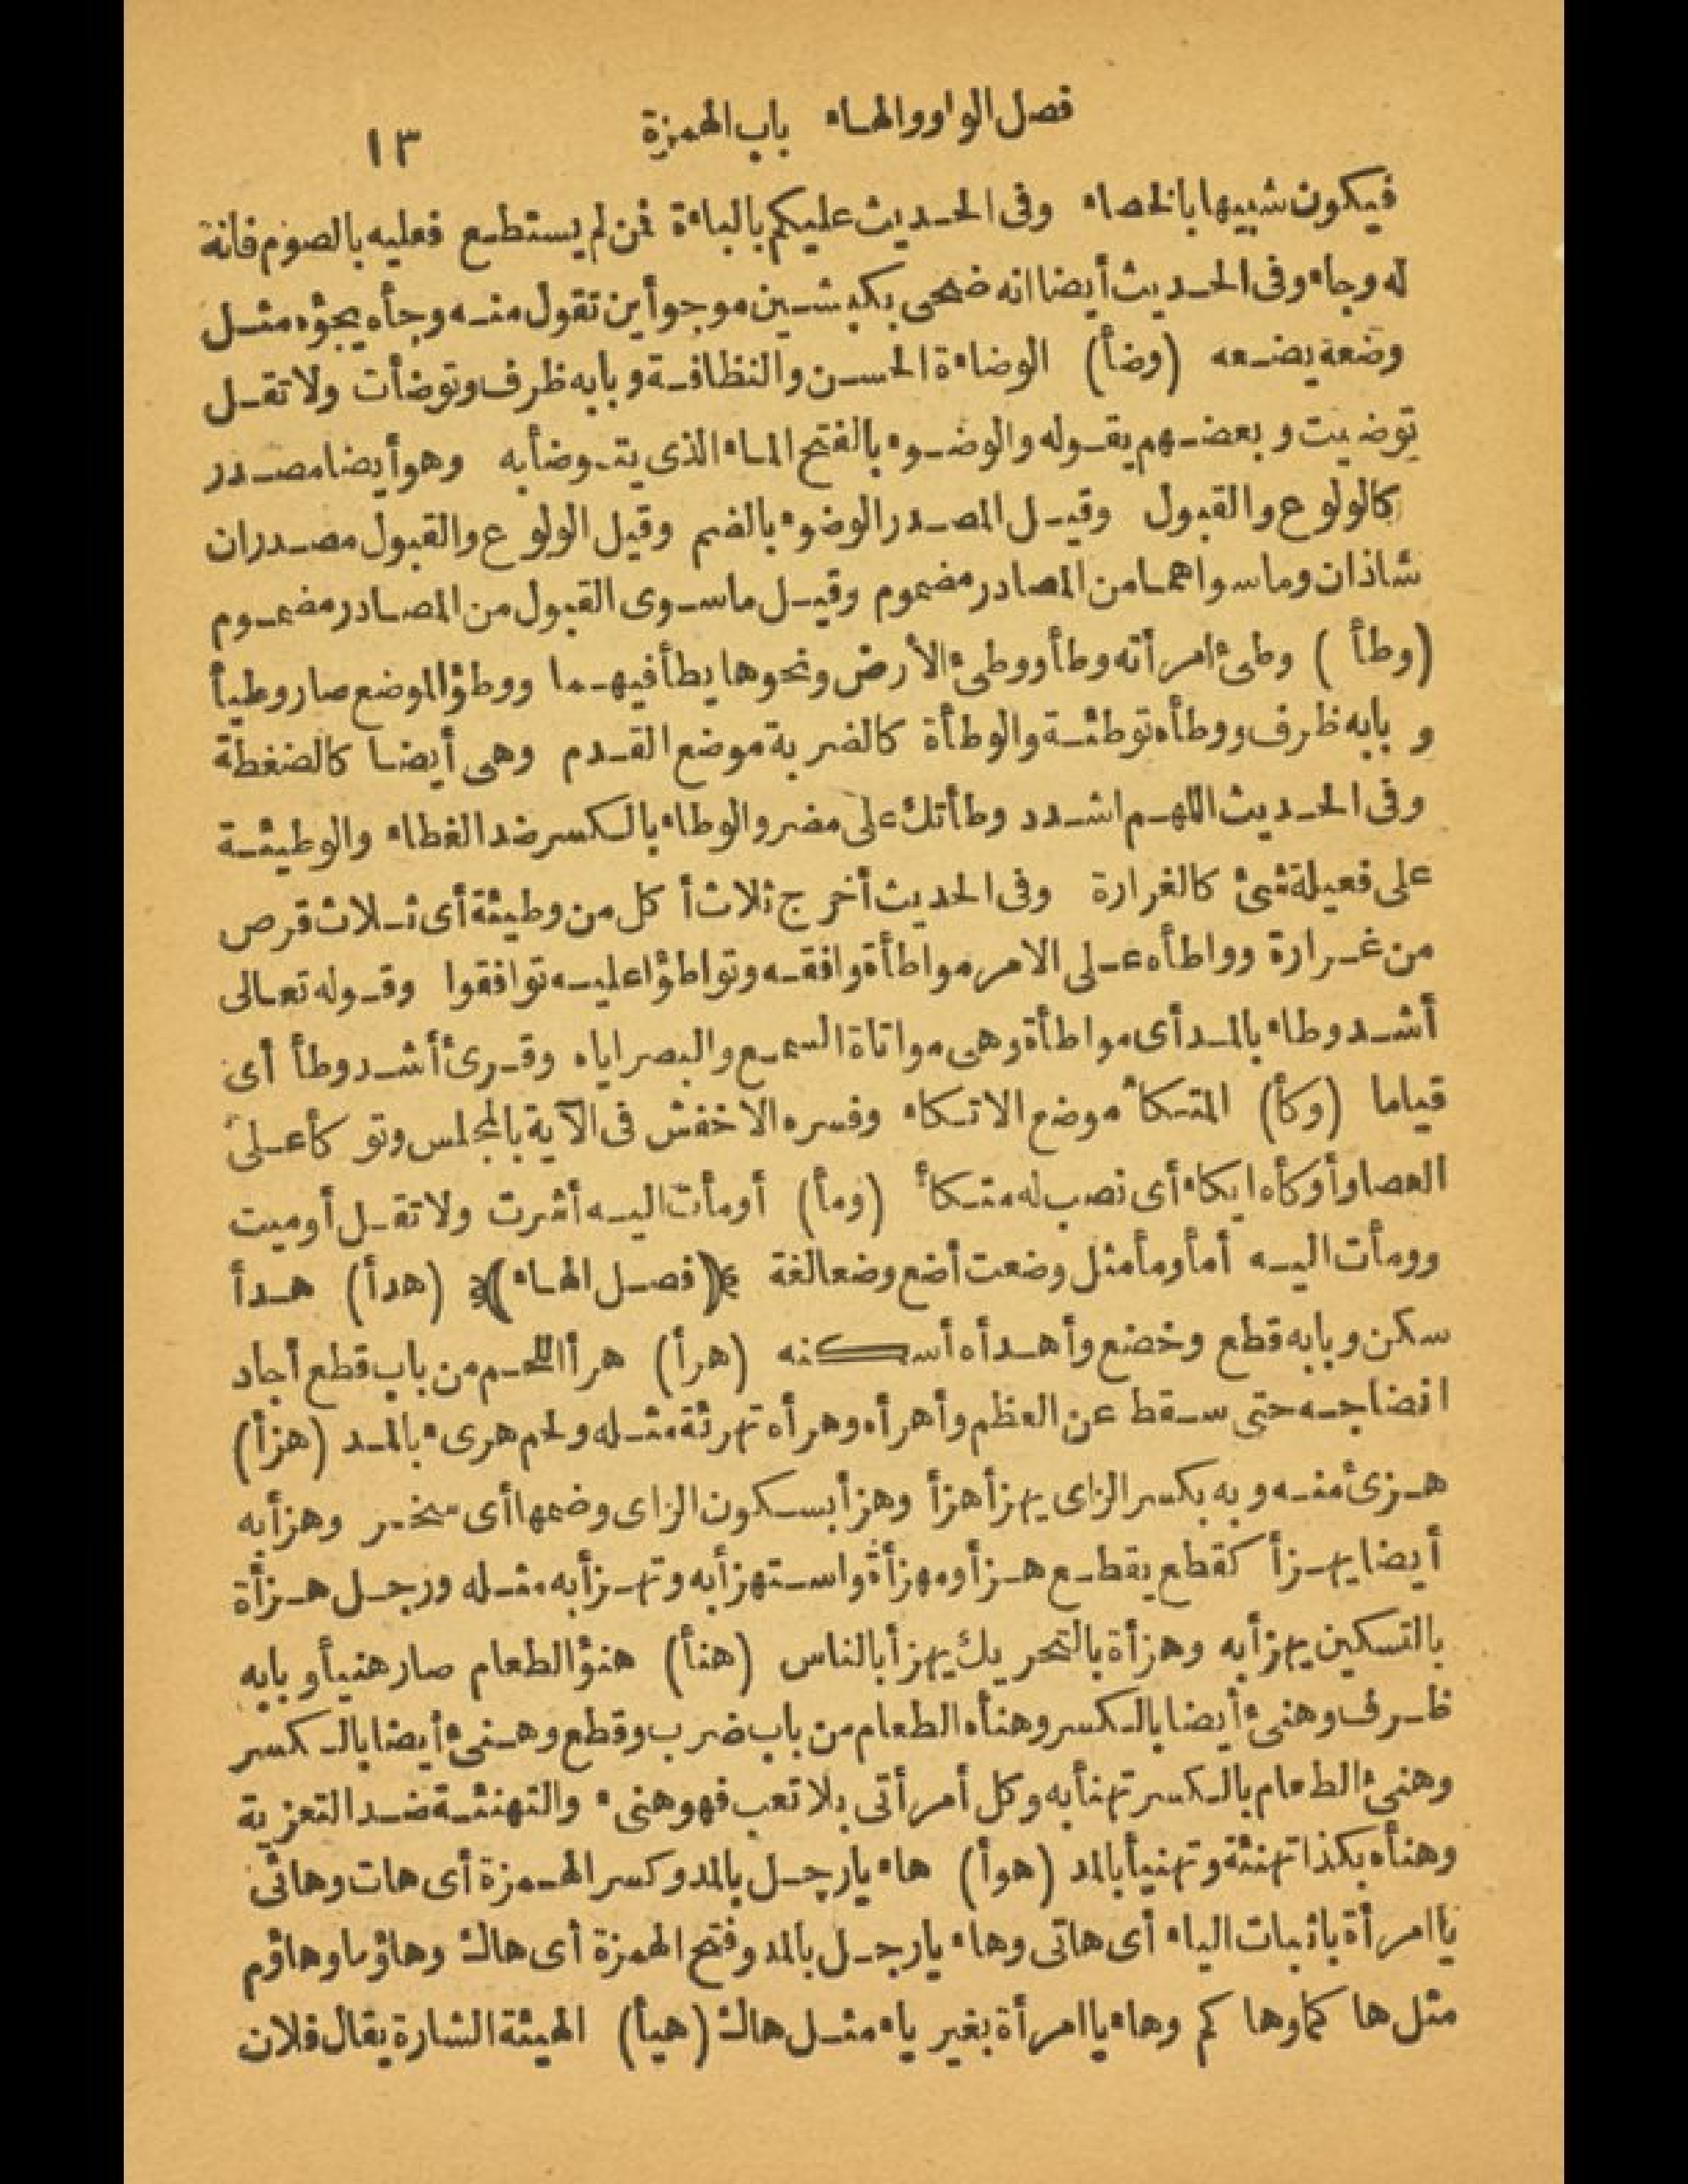 فصل الواو والهاء باب الهمزة ١٣
فيكون شبيها بالخصاء وفى الحديث عليكم بالباءة فمن لم يستطع فعليه بالصوم فانه
له وجاء وفى الحديث أيضا انه ضحى بكبشين موجوأين تقول منه وجأه يجؤه مثل
وضعه يضعه (وضأ) الوضاءة الحسن والنظافة وبابه ظرف وتوضأت ولا تقل
توضيت وبعضهم يقوله والوضوء بالفتح الماء الذى يتوضأ به وهو أيضا مصدر
كالولوع والقبول وقيل المصدر الوضوء بالضم وقيل الولوع والقبول مصدران
شاذان وما سواهما من المصادر مضموم وقيل ما سوى القبول من المصادر مضموم
(وطأ) وطئ امرأته وطأ ووطئ الأرض ونحوها يطأ فيهما ووطؤ الموضع صار وطيأ
وبابه ظرف ووطأه توطئة والوطأة كالضربة موضع القدم وهى أيضا كالضغطة
وفى الحديث اللهم اشدد وطأتك على مضر والوطاء بالكسر ضد الغطاء والوطيئة
على فعيلة شئ كالغرارة وفى الحديث أخرج ثلاث أكل من وطيئة أى ثلاث قرص
من غرارة وواطأه على الامر مواطأة وافقه وتواطؤا عليه توافقوا وقوله تعالى
أشد وطاء بالمد أى مواطأة وهى مواتاة السمع والبصر اياه وقرئ أشد وطأ أى
قياما (وكأ) المتكأ موضع الاتكاء وفسره الاخفش فى الآية بالمجلس وتوكأ على
العصا وأوكأه ايكاء أى نصب له متكأ (ومأ) أومأت اليه أشرت ولا تقل أوميت
وومأت اليه أمأ ومأ مثل وضعت أضع وضعا لغة ﴿فصل الهاء﴾ (هدأ) هدأ
سكن وبابه قطع وخضع وأهدأه أسكنه (هرأ) هرأ اللحم من باب قطع أجاد
انضاجه حتى سقط عن العظم وأهرأه وهرأه تهرئة مثله ولحم هرىء بالمد (هزأ)
هزئ منه وبه بكسر الزاى يهزأ هزأ وهزأ بسكون الزاى وضمها أى سخر وهزأ به
أيضا يهزأ كقطع يقطع هزأ ومهزأة واستهزأ به وتهزأ به مثله ورجل هزأة
بالتسكين يهزأ به وهزأة بالتحريك يهزأ بالناس (هنأ) هنؤ الطعام صار هنيأ وبابه
ظرف وهنئ أيضا بالكسر وهنأه الطعام من باب ضرب وقطع وهنئ أيضا بالكسر
وهنئ الطعام بالكسر تهنأ به وكل أمر أتى بلا تعب فهو هنىء والتهنئة ضد التعزية
وهنأه بكذا تهنئة وتهنيأ بالمد (هوأ) هاء يا رجل بالمد وكسر الهمزة أى هات وهائى
يا امرأة باثبات الياء أى هاتى وهاء يا رجل بالمد وفتح الهمزة أى هاك وهاؤما وهاؤم
مثل هاكما وهاكم وهاء يا امرأة بغير ياء مثل هاك (هيأ) الهيئة الشارة يقال فلان